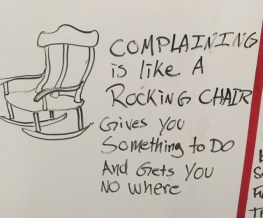 COMPLAINING
is like A
ROCKING CHAIR
Gives you
Something to DO
And Gets You
NO Where